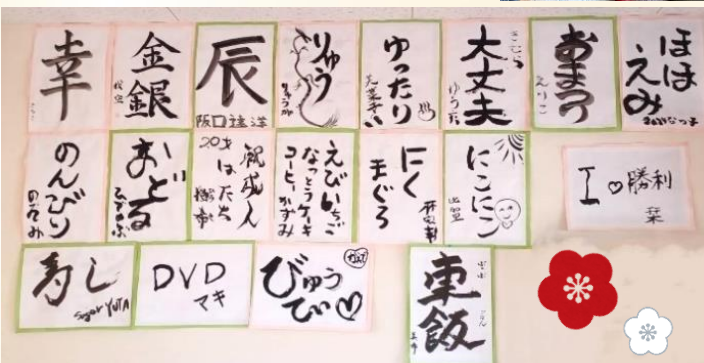 幸
金
銀
辰
りゅう
りゅうが
ゆったり
大丈夫
ゆうな
おまつり
えりこ
ほほ
えみ
のんびり
のぞみ
おどる
ひでのぶ
祝成人
20才
はたち
えびいちご
なっとうケーキ
コーヒーかずみ
にく
まぐろ
にこにこ
I♡勝利
栞
寿し
Sugar YUTA
DVD
マキ
びゅう
てぃ♡
車飯